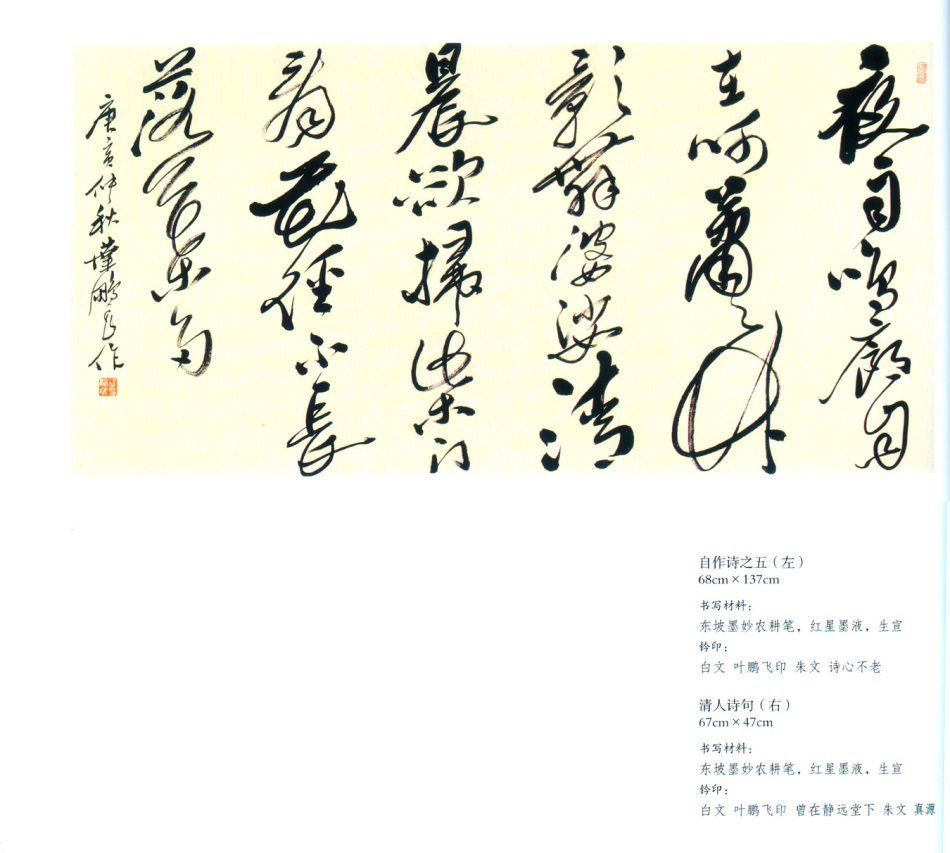 夜雨鳴廊
蕭蕭竹
影舞婆娑清
晨欲掃柴门
看花徑不長
落
庚寅仲秋 鵬 作
自作诗之五（左）
68cm×137cm
书写材料：
东坡墨妙农耕笔，红星墨液，生宣
钤印：
白文 叶鹏飞印 朱文 诗心不老
清人诗句（右）
67cm×47cm
书写材料：
东坡墨妙农耕笔，红星墨液，生宣
钤印：
白文 叶鹏飞印 曾在静远堂下 朱文 真源